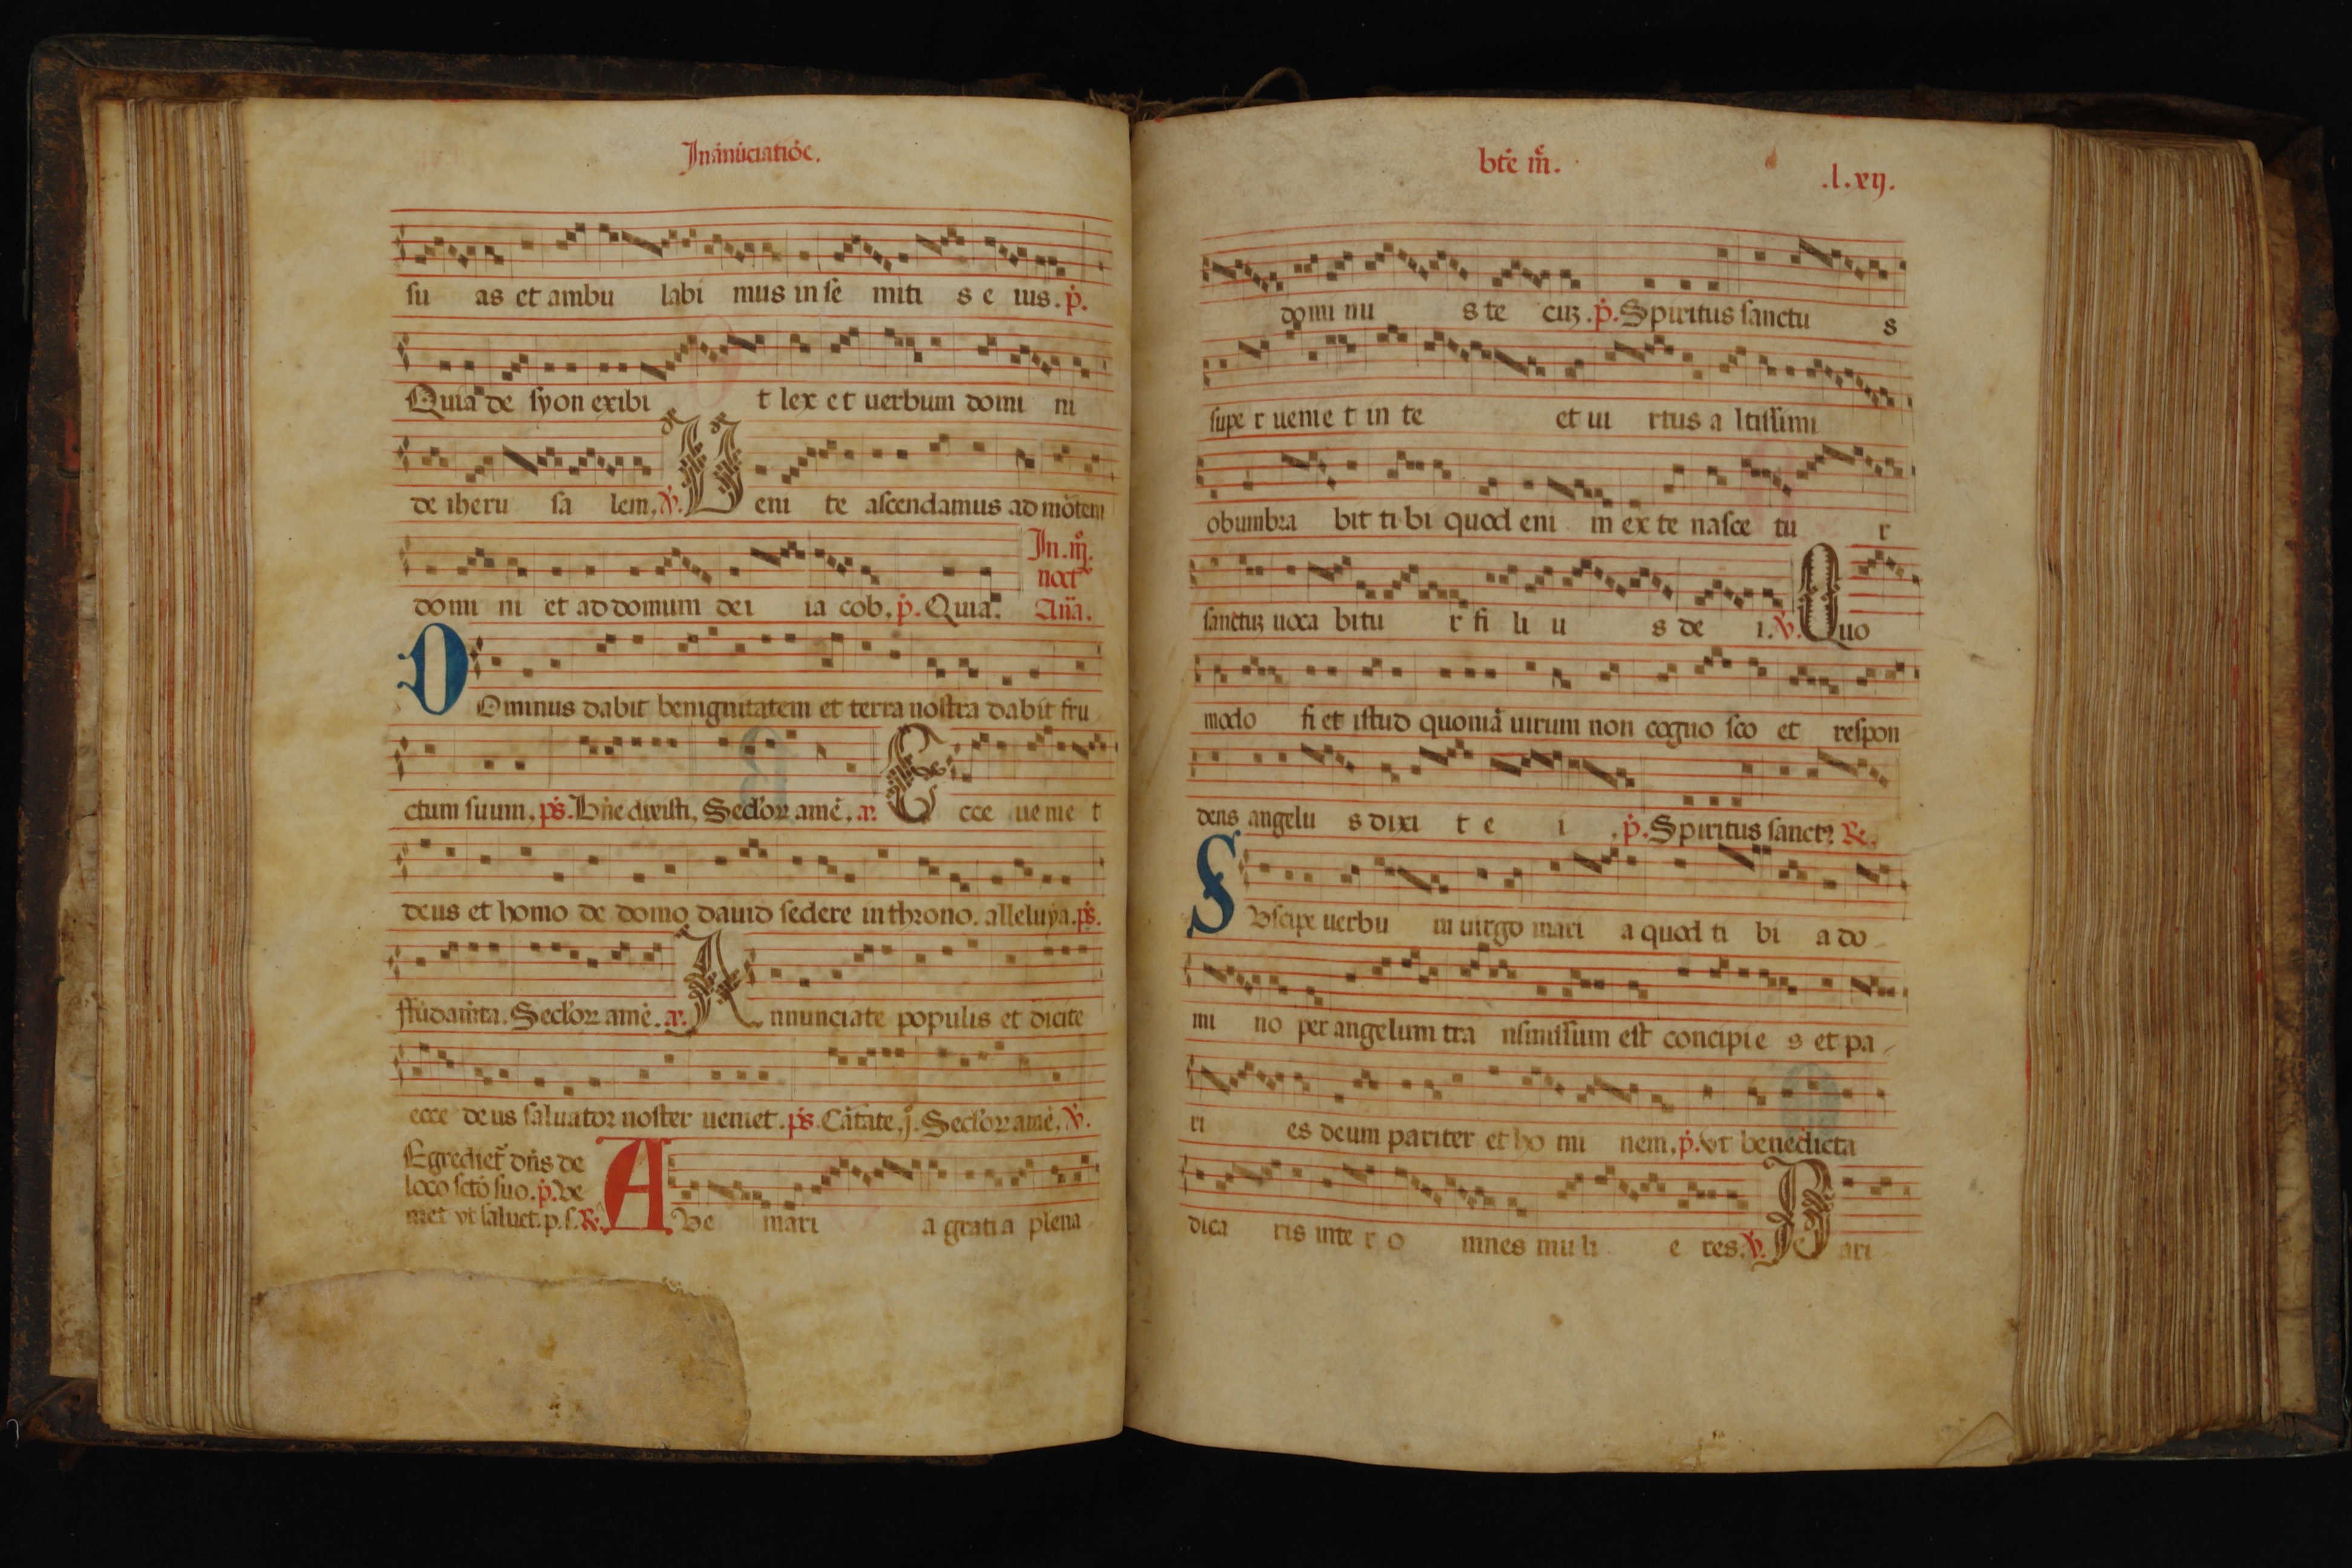 In ānūciatiōe.
su as et ambu labi mus in se miti s e ius. p̄.
Quia de syon exibi t lex et uerbum domi ni
de iheru sa lem, V̄. Ueni te ascendamus ad mōtem
domi ni et ad domum dei ia cob, p̄. Quia. In .iij.
noct̄
Aña.
DOminus dabit benignitatem et terra nostra dabit fru
ctum suum, ps̄. Bn̄edixisti, Secl'oꝝ amē. a. Ecce uenie t
deus et homo de domo dauid sedere in throno. alleluya. ps̄.
ffūdam̄ta. Secl'oꝝ amē. a. Annunciate populis et dicite
ecce deus saluator noster ueniet. ps̄. Cātate .j. Secl'oꝝ amē, V̄.
Egrediet̄ dn̄s de
loco sc̄to suo. p̄. Ve
niet vt saluet. p. s. ℟. AVe mari a grati a plena
bt̄e m̄.
.l.xij.
domi nu s te cuꝫ. p̄. Spiritus sanctu s
supe r uenie t in te et ui rtus a ltissimi
obumbra bit ti bi quod eni m ex te nasce tu r
sanctuꝫ uoca bitu r fi li u s de i. V̄. Quo
modo fi et istud quoniā uirum non cogno sco et respon
dens angelu s dixi t e i . p̄. Spiritus sanctꝰ ℟.
SVscipe uerbu m uirgo mari a quod ti bi a do
mi no per angelum tra nsmissum est concipie s et pa
ri es deum pariter et ho mi nem, p̄. Vt benedicta
dica ris inte r o mnes mu li e res. V̄. Pari